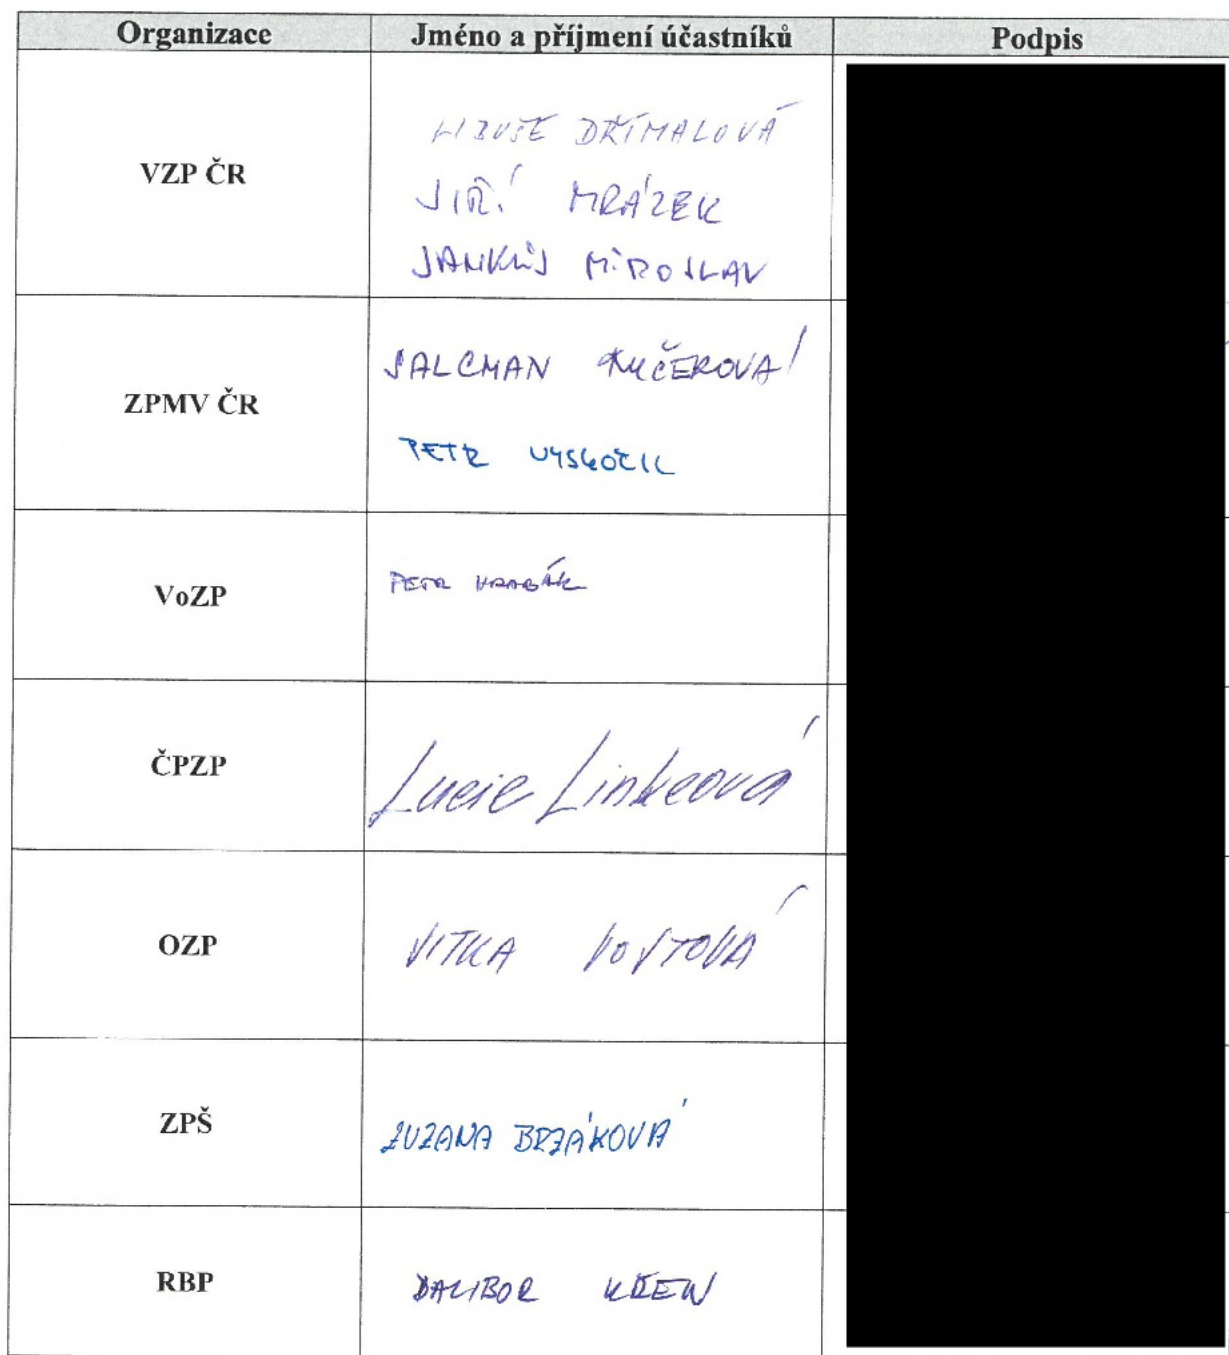 Organizace Jméno a příjmení účastníků Podpis
VZP ČR
LIBUŠE DŘÍMALOVÁ
JIŘÍ MRÁZEK
JANKŮJ MIROSLAV
ZPMV ČR
SALCMAN KUČEROVÁ
PETR VYSKOČIL
VoZP
PETR HRABÁK
ČPZP
Lucie Linkeová
OZP
VITKA VOJTOVÁ
ZPŠ
ZUZANA BRZÁKOVÁ
RBP
DALIBOR